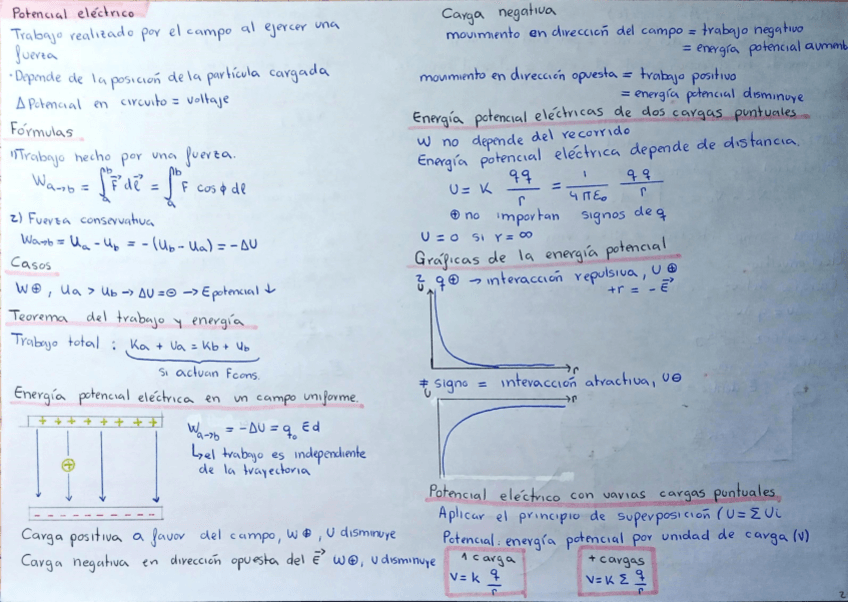 Potencial eléctrico
Trabajo realizado por el campo al ejercer una
fuerza
·Depende de la posición de la partícula cargada
Δ Potencial en circuito = voltaje
Fórmulas
1)Trabajo hecho por una fuerza.
W a→b = ∫_a^b F⃗ dℓ⃗ = ∫_a^b F cos ϕ dℓ
2) Fuerza conservativa
W a→b = Ua - Ub = -(Ub - Ua) = -ΔU
Casos
W⊕, Ua > Ub → ΔU = ⊖ → E potencial ↓
Teorema del trabajo y energía
Trabajo total : Ka + Ua = Kb + Ub
si actuan Fcons.
Energía potencial eléctrica en un campo uniforme.
+ + + + + + + +
W a→b = -ΔU = q₀ E d
↳el trabajo es independiente
de la trayectoria
+
- - - - - - - -
Carga positiva a favor del campo, W⊕, U disminuye
Carga negativa en dirección opuesta del E⃗ W⊕, U disminuye
Carga negativa
movimiento en dirección del campo = trabajo negativo
= energía potencial aument
movimiento en dirección opuesta = trabajo positivo
= energía potencial disminuye
Energía potencial eléctricas de dos cargas puntuales
W no depende del recorrido
Energía potencial eléctrica depende de distancia.
U = K qq/r = 1/4πε₀ qq/r
⊕ no importan signos de q
U = 0 si r = ∞
Gráficas de la energía potencial
2 q⊕ → interacción repulsiva, U⊕
+r = -E⃗
U
r
≠ signo = interacción atractiva, U⊖
U
r
Potencial eléctrico con varias cargas puntuales
Aplicar el principio de superposición (U = Σ Ui
Potencial: energía potencial por unidad de carga (V)
1 carga
V = K q/r
+ cargas
V = K Σ q/r
2